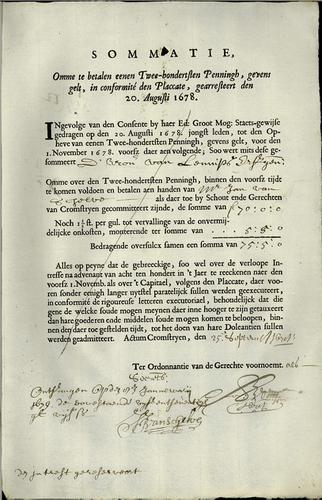 SOMMATIE,
Omme te betalen eenen Twee-hondertsten Penningh, gevens
gelt, in conformité den Placcate, gearresteert den
20. Augusti 1678.
INgevolge van den Consente by haer Ed: Groot Mog: Staets-gewijse
gedragen op den 20. Augusti 1678. jongst leden, tot den Op-
heve van eenen Twee-hondertsten Penningh, gevens gelt, voor den
1. November 1678. voorsz. daer aen volgende; Soo wert mits dese ge-
sommeert
Omme over den Twee-hondertsten Penningh, binnen den voorsz tijdt
te komen voldoen en betalen aen handen van Mr Jan van
als daer toe by Schout ende Gerechten
van Cromstryen gecommitteert zijnde, de somme van 70:0:0
Noch 1½ st. per gul. tot vervallinge van de onvermij-
delijcke onkosten, monterende ter somme van 5:5:0
Bedragende oversulcx samen een somma van 75:5:0
Alles op peyne dat de gebreeckige, soo wel over de verloope Inte-
resse na advenant van acht ten hondert in 't Jaer te reeckenen naer den
voorsz 1. Novemb. als over 't Capitael, volgens den Placcate, daer voo-
ren sonder eenigh langer uytstel paratelijk sullen werden geexecuteert,
in conformité de rigoreuse letteren executoriael, behoudelijk dat die
gene de welcke soude mogen meynen daer inne hooger te zijn getauxeert
dan hare goederen ende middelen soude mogen komen te beloopen, bin-
nen den daer toe gestelden tijdt, tot het doen van hare Doleantien sullen
werden geadmitteert. Actum Cromstryen, den 25.
Ter Ordonnantie van de Gerechte voornoemt.